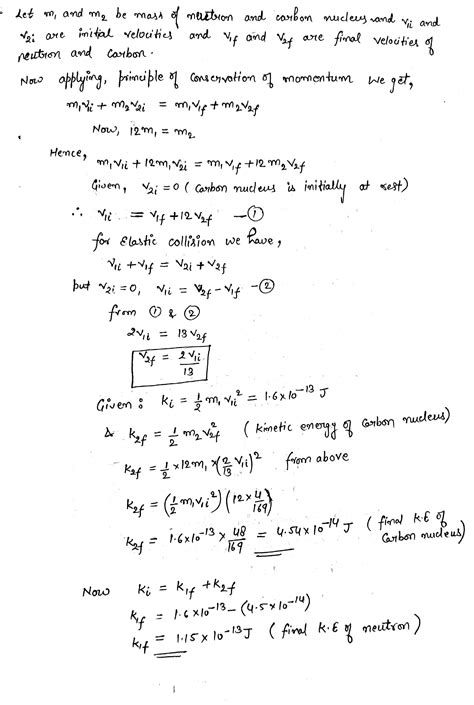 Let m₁ and m₂ be mass of neutron and carbon nucleus and v₁ᵢ and
v₂ᵢ are initial velocities and v₁f and v₂f are final velocities of
neutron and Carbon.
Now applying, principle of conservation of momentum we get,
m₁v₁ᵢ + m₂v₂ᵢ = m₁v₁f + m₂v₂f
Now, 12m₁ = m₂
Hence, m₁v₁ᵢ + 12m₁v₂ᵢ = m₁v₁f + 12m₂v₂f
Given, v₂ᵢ = 0 (Carbon nucleus is initially at rest)
∴ v₁ᵢ = v₁f + 12v₂f — ①
for Elastic collision we have,
v₁ᵢ + v₁f = v₂ᵢ + v₂f
but v₂ᵢ = 0, v₁ᵢ = v₂f - v₁f — ②
from ① & ②
2v₁ᵢ = 13v₂f
v₂f = 2v₁ᵢ / 13
Given : Kᵢ = ½ m₁v₁ᵢ² = 1.6×10⁻¹³ J
& K₂f = ½ m₂v₂f² (kinetic energy of Carbon nucleus)
K₂f = ½ × 12m₁ × (2/13 v₁ᵢ)² from above
K₂f = (½ m₁v₁ᵢ²) (12 × 4/169)
K₂f = 1.6×10⁻¹³ × 48/169 = 4.54×10⁻¹⁴ J (final K.E of Carbon nucleus)
Now Kᵢ = K₁f + K₂f
K₁f = 1.6×10⁻¹³ - (4.5×10⁻¹⁴)
K₁f = 1.15×10⁻¹³ J (final K.E of neutron)